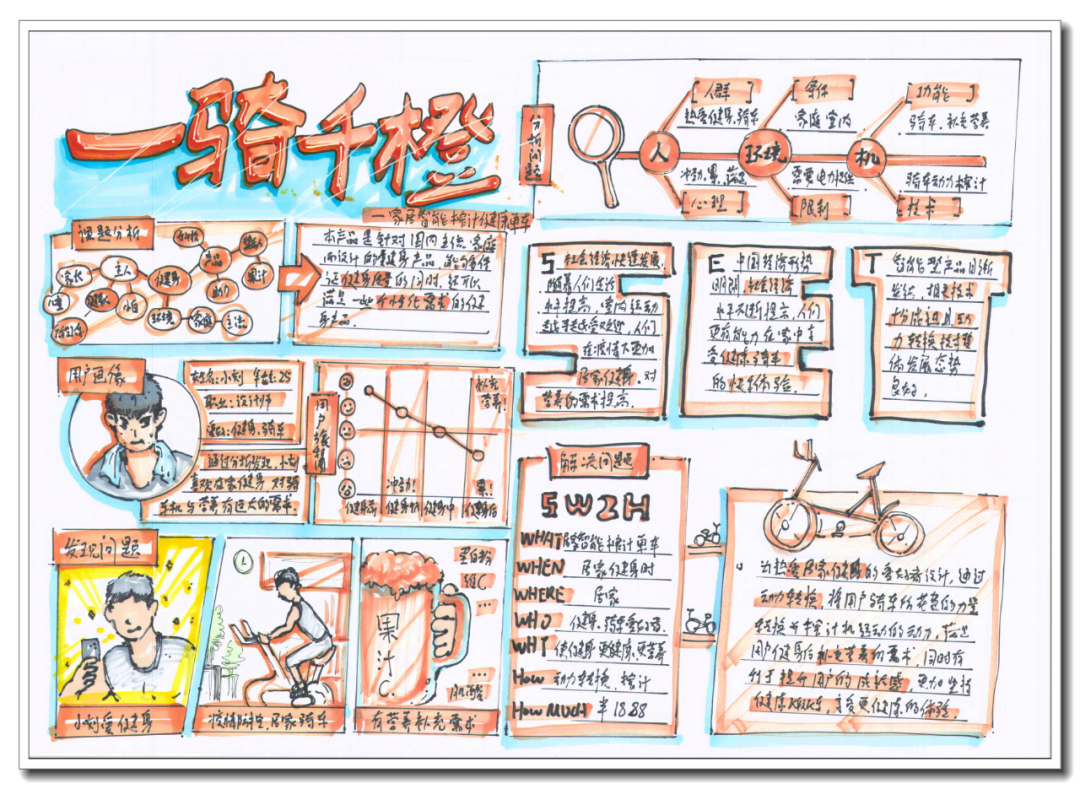 一骑千橙
一家居智能榨汁健康单车
课题分析
家长
主人
健身
产品
果汁
助力
环境
家庭
方法
本产品是针对国内主流家庭
而设计的健身产品，能够保证
满足一些个性化需求的健
身产品.
分析问题
[人群]
热爱健身.骑车
[条件]
家庭 室内
[功能]
骑车.补充营养
人
环境
机
冲动.累.满足
需要电力投资
骑车动力榨汁
[心理]
[限制]
[技术]
S 社会经济快速发展.
随着人们生活
水平提高，室内运动
越来越受欢迎，人们
在疫情下更加
居家健身. 对
营养的需求提高.
E 中国经济形势
明朗，社会经济
水平不断提高，人们
更有能力在家中享
受健康骑车
的快乐体验.
T 智能型产品日渐
发达，相关技术
十分成熟且动
力转换技术整
体发展态势
良好.
用户画像
姓名:小刘 年龄:25
职业:设计师
爱好:健身.骑车
通过分析发现，小刘
喜欢在家健身 对骑
车机与营养有迫大的需求.
用户情绪
补充
营养!
冲动!
累!
健身前
健身初
健身中
健身后
发现问题
小刘爱健身
疫情防控.居家骑车
果汁
蛋白粉
维C
...
...
肌酸
有营养补充需求
解决问题
5W2H
WHAT 居家智能榨汁单车
WHEN 居家健身时
WHERE 居家
WHO 健身.骑车爱好者.
WHY 使健身更健康.更营养
How 动力转换，榨汁
How MUCH 半1888
为热爱居家健身的爱好者设计，通过
动力转换，将用户骑车所花费的力量
转换为榨汁机运动的动力，满足
用户健身后补充营养的需求，同时有
利于提升用户的成就感，更加坚持
健康快乐，享受更健康的体验.